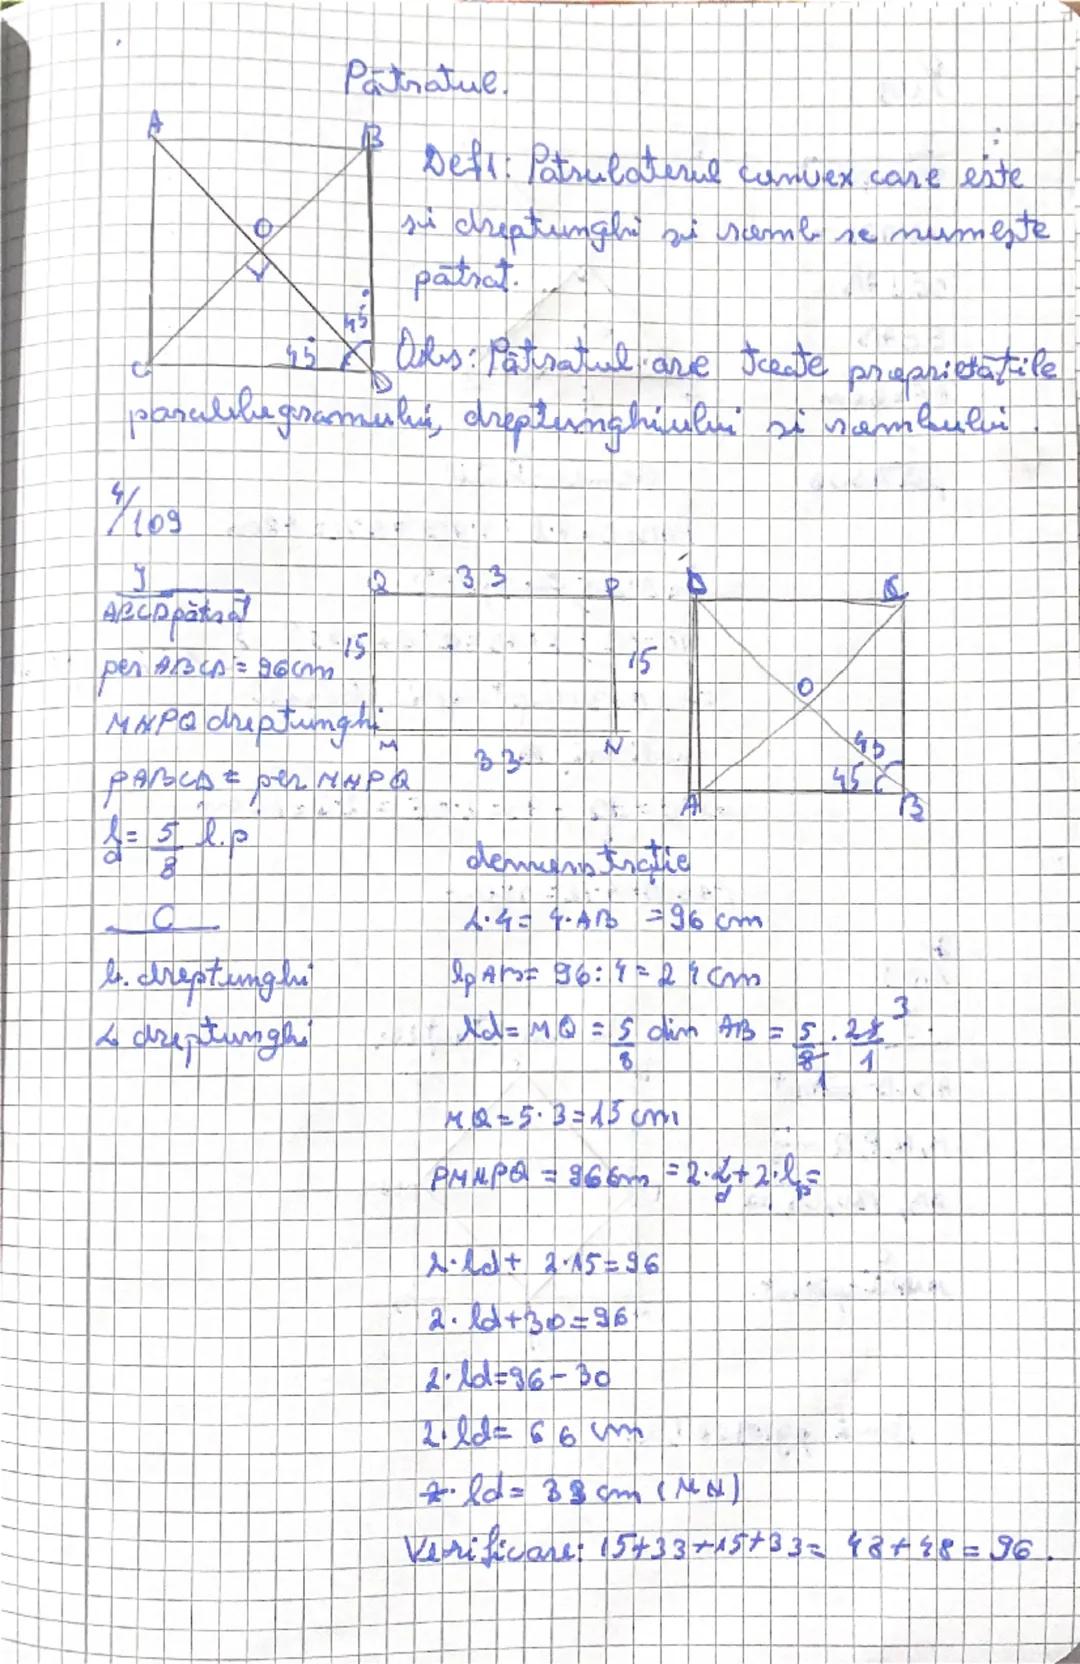 Pătratul.
A B
Def1: Patrulaterul convex care este
și dreptunghi și romb se numește
pătrat.
O
45°
45°
C D
Obs: Pătratul are toate proprietățile
paralelogramului, dreptunghiului și rombului.
4/109
I
ABCD pătrat
per ABCD = 96cm
MNPQ dreptunghi
PABCD = per MNPQ
l d = 5/8 l.p
C
l. dreptunghi
L dreptunghi
Q 33 P
15 15
M 33 N
D C
O
45
45
A B
demonstrație
L·4 = 4·AB = 96 cm
lp AB = 96:4 = 24 cm
ld = MQ = 5/8 din AB = 5/8 · 24/1 3
1
MQ = 5·3 = 15 cm
PMNPQ = 96cm = 2·L d + 2·l p =
2·Ld + 2·15 = 96
2·Ld + 30 = 96
2·Ld = 96 - 30
2·Ld = 66 cm
Ld = 33 cm (MN)
Verificare: 15+33+15+33 = 48+48 = 96.